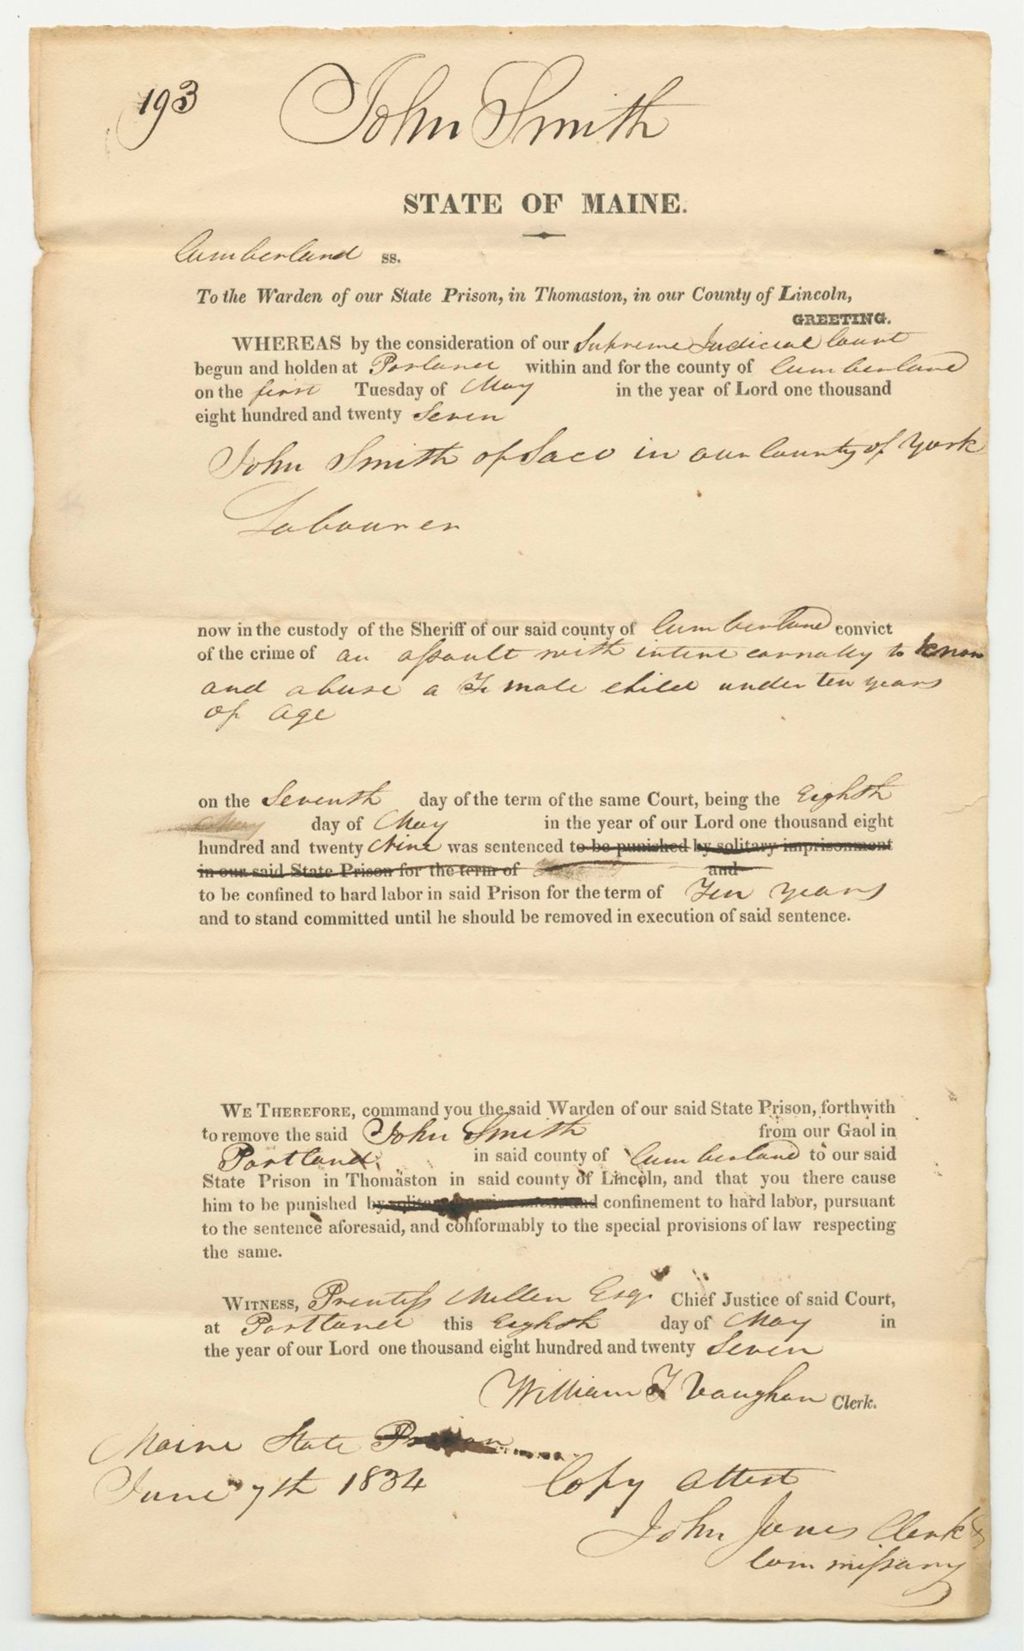 193 John Smith
STATE OF MAINE.
Cumberland ss.
To the Warden of our State Prison, in Thomaston, in our County of Lincoln,
GREETING.
WHEREAS by the consideration of our Supreme Judicial Court
begun and holden at Portland within and for the county of Cumberland
on the first Tuesday of May in the year of Lord one thousand
eight hundred and twenty Seven
John Smith of Saco in our County of York
Labourer
now in the custody of the Sheriff of our said county of Cumberland convict
of the crime of an assault with intent carnally to know
and abuse a Female child under ten years
of age
on the Seventh day of the term of the same Court, being the Eighth
day of May in the year of our Lord one thousand eight
hundred and twenty Nine was sentenced to be punished by solitary imprisonment
in our said State Prison for the term of and
to be confined to hard labor in said Prison for the term of Ten years
and to stand committed until he should be removed in execution of said sentence.
WE THEREFORE, command you the said Warden of our said State Prison, forthwith
to remove the said John Smith from our Gaol in
Portland in said county of Cumberland to our said
State Prison in Thomaston in said county of Lincoln, and that you there cause
him to be punished by solitary imprisonment and confinement to hard labor, pursuant
to the sentence aforesaid, and conformably to the special provisions of law respecting
the same.
WITNESS, Prentiss Mellen Esq. Chief Justice of said Court,
at Portland this Eighth day of May in
the year of our Lord one thousand eight hundred and twenty Seven
William T Vaughan Clerk.
Maine State Prison
June 7th 1834 Copy attest
John Jones Clerk &
Commissary